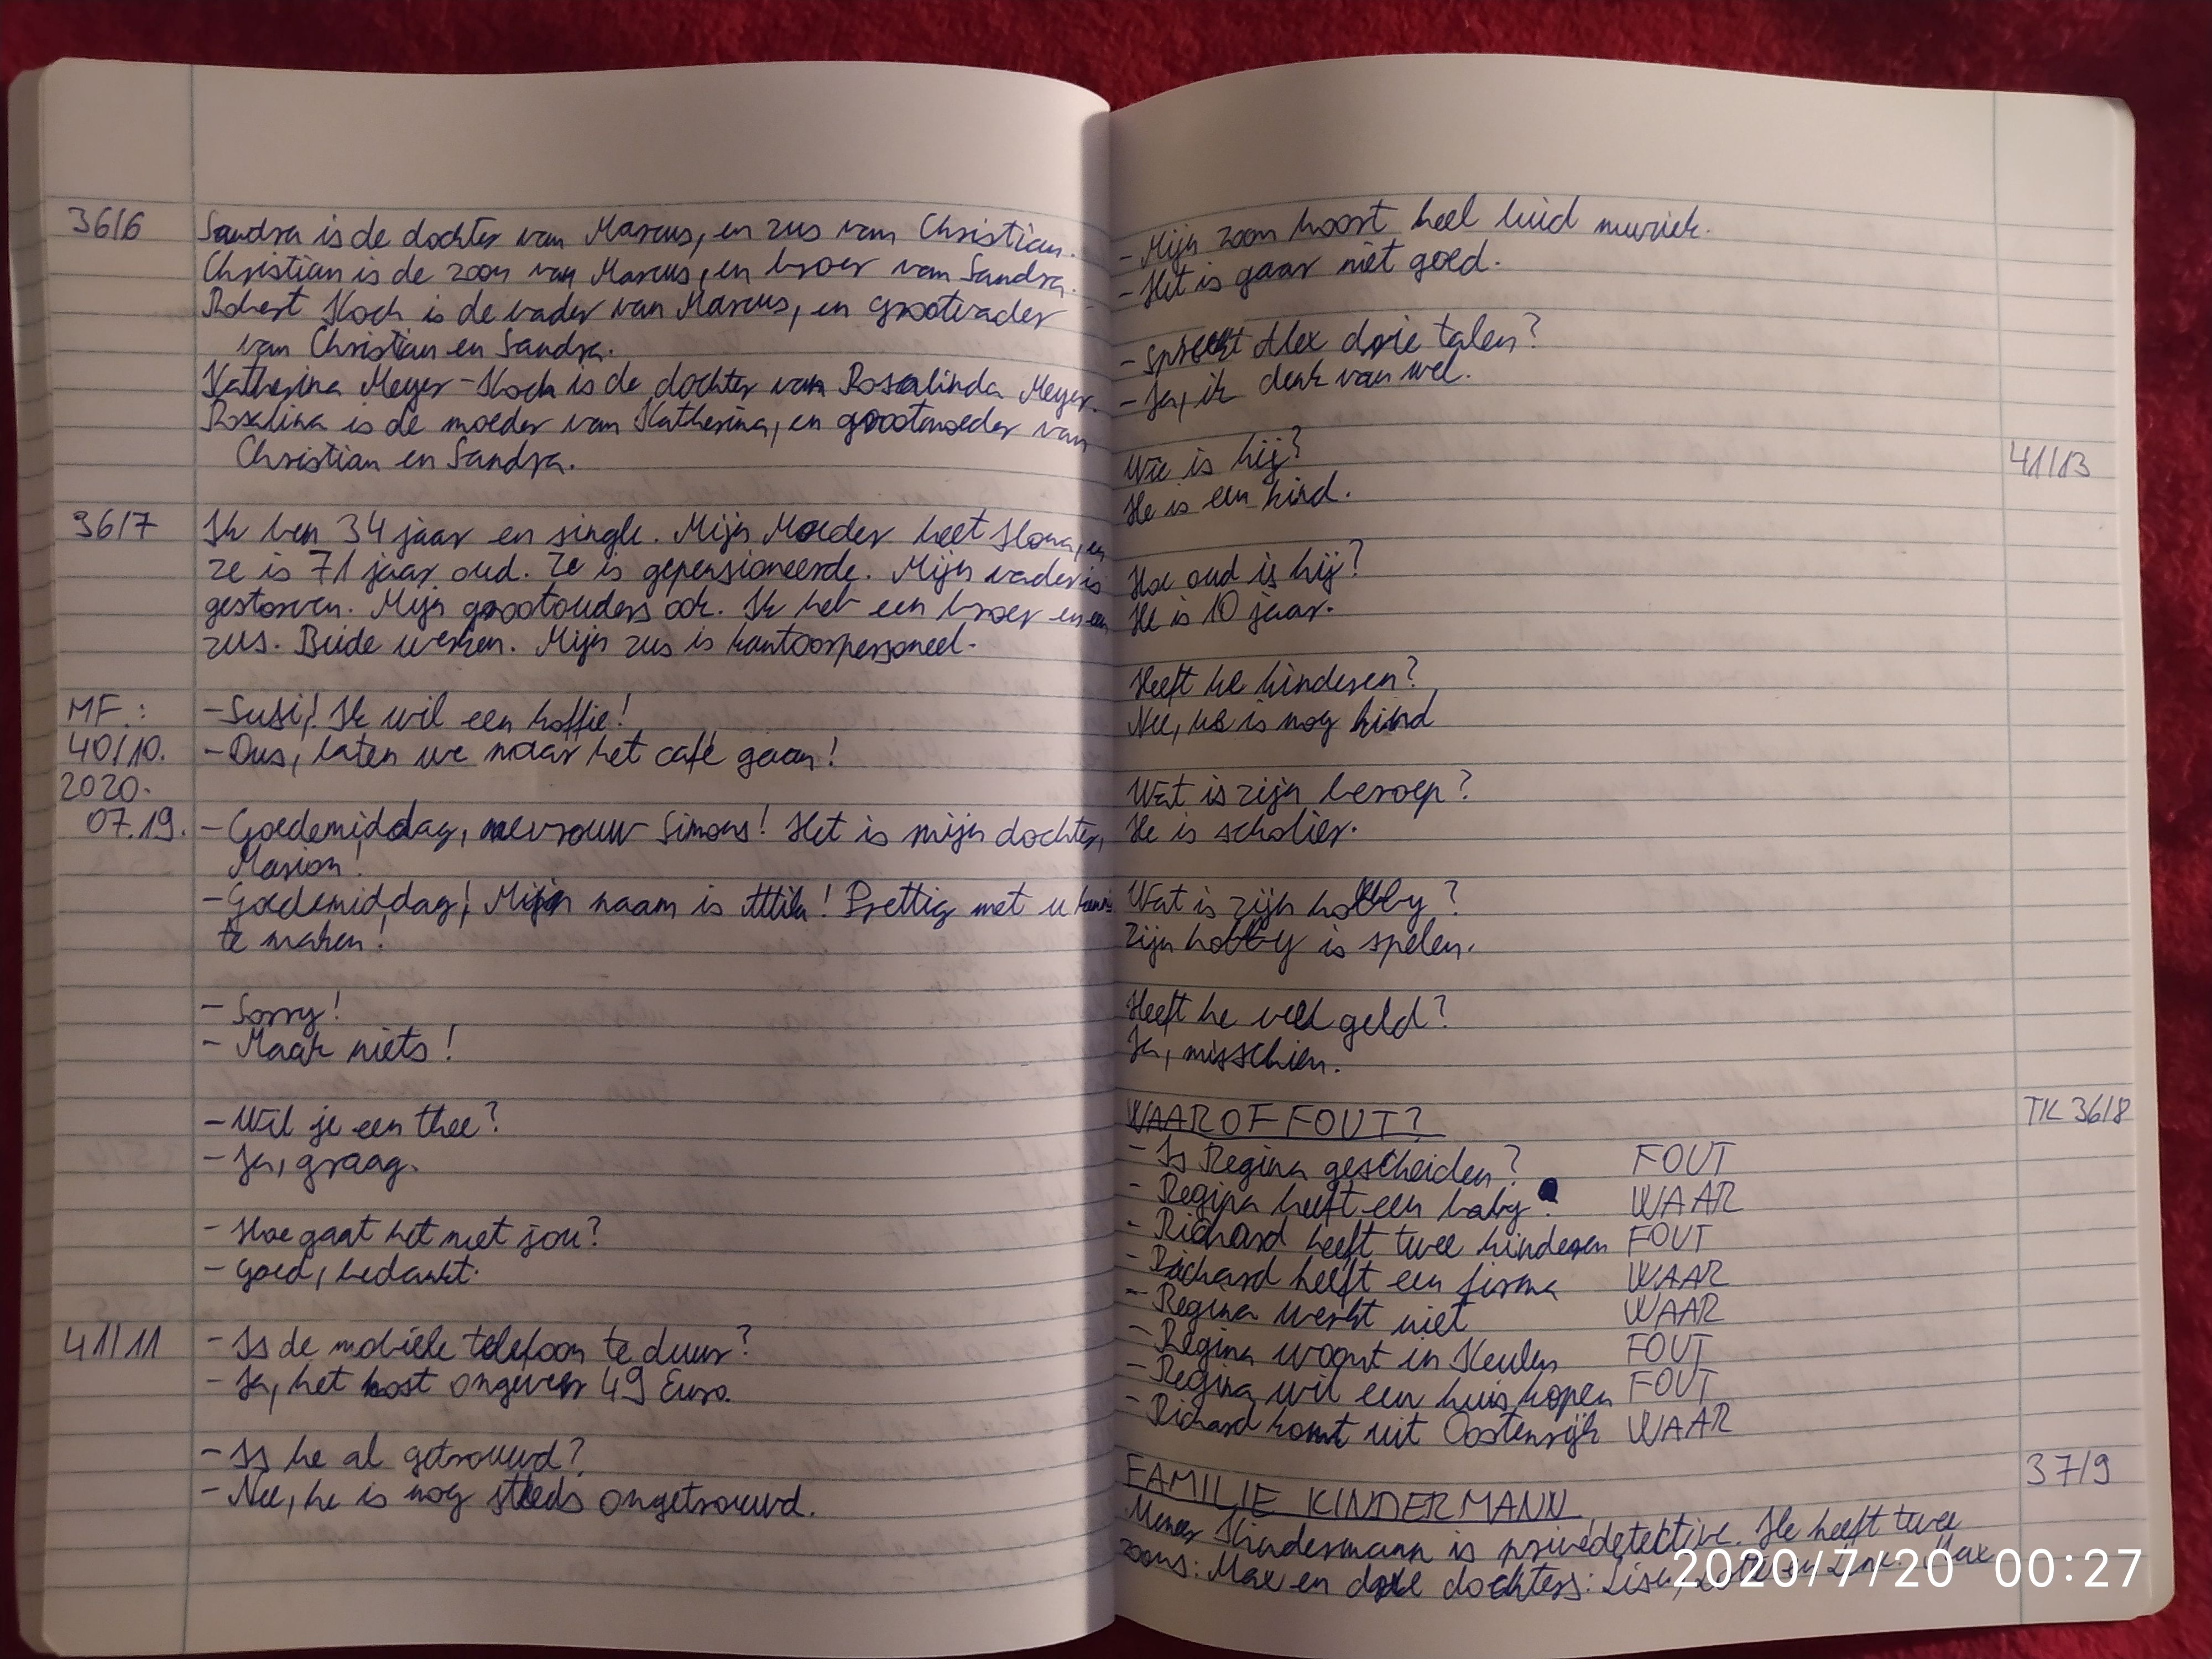 36/6 Sandra is de dochter van Marcus, en zus van Christian.
Christian is de zoon van Marcus, en broer van Sandra.
Robert Koch is de vader van Marcus, en grootvader
van Christian en Sandra.
Katherina Meyer-Koch is de dochter van Rosalinda Meyer.
Rosalina is de moeder van Katherina, en grootmoeder van
Christian en Sandra.
36/7 Ik ben 34 jaar en single. Mijn Moeder heet Ilona, en
ze is 71 jaar oud. Ze is gepensioneerde. Mijn vader is
gestorven. Mijn grootouders ook. Ik heb een broer en een
zus. Beide werken. Mijn zus is kantoorpersoneel.
MF.: - Susi! Ik wil een koffie!
40/10. - Dus, laten we naar het café gaan!
2020.
07.19. - Goedemiddag, mevrouw Simons! Het is mijn dochter,
Marion!
- Goedemiddag! Mijn naam is Attila! Prettig met u kennis
te maken!
- Sorry!
- Maak niets!
- Wil je een thee?
- Ja, graag.
- Hoe gaat het met jou?
- Goed, bedankt.
41/11 - Is de mobiele telefoon te duur?
- Ja, het kost ongeveer 49 Euro.
- Is he al getrouwd?
- Nee, he is nog steeds ongetrouwd.
- Mijn zoon hoort heel luid muziek.
- Het is gaar niet goed.
- Spreekt Alex drie talen?
- Ja, ik denk van wel.
Wie is hij? 41/13
He is een kind.
Hoe oud is hij?
He is 10 jaar.
Heeft he kinderen?
Nee, he is nog kind
Wat is zijn beroep?
He is scholier.
Wat is zijn hobby?
Zijn hobby is spelen.
Heeft he veel geld?
Ja, misschien.
WAAR OF FOUT? TK 36/8
- Is Regina gescheiden? FOUT
- Regina heeft een baby WAAR
- Richard heeft twee kinderen FOUT
- Richard heeft een firma WAAR
- Regina werkt niet WAAR
- Regina woont in Keulen FOUT
- Regina wil een huis kopen FOUT
- Richard komt uit Oostenrijk WAAR
FAMILIE KINDERMANN 37/9
Meneer Kindermann is privédetective. He heeft twee
zoons: Max en drie dochters: Lisa, en Max
2020/7/20 00:27